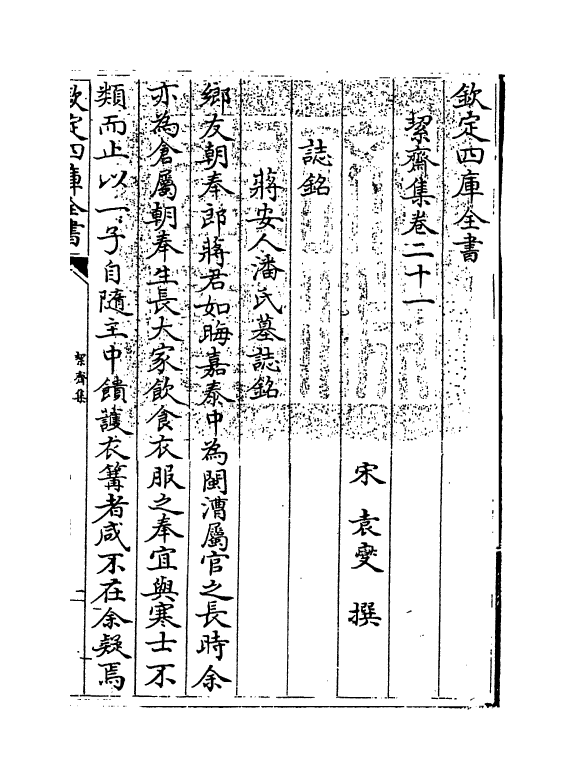 欽定四庫全書
絜齋集卷二十一
宋 袁燮 撰
誌銘
蔣安人潘氏墓誌銘
鄉友朝奉郎蔣君如晦嘉泰中為閩漕屬官之長時余
亦為倉屬朝奉生長大家飲食衣服之奉宜與寒士不
類而止以一子自隨主中饋護衣篝者咸不在余疑焉
欽定四庫全書
絜齋集
一